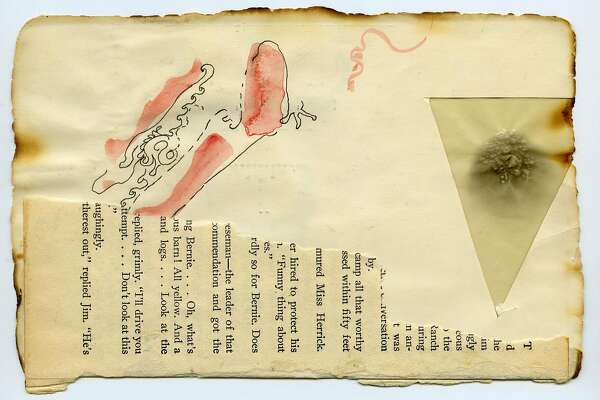 T
d
he
im
ngly
cous
kanch
uring
n an-
t was
nversation
by.
camp all that worthy
ssed within fifty feet
mured Miss Herrick.
er hired to protect his
t. "Funny thing about
es."
rdly so for Bernie. Does
eseman—the leader of that
commendation and got the
ng Bernie. . . . Oh, what's
ous barn! All yellow. And a
and logs. . . . Look at the
replied, grimly. "I'll drive you
attempt. . . . Don't look at this
."
aughingly.
therest out," replied Jim. "He's